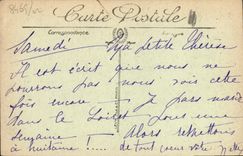 8451/02
Carte Postale
Correspondance
Samedi Ma petite Thérèse
Il est écrit que nous ne
pourrons pas nous voir cette
fois encore Je pars mardi
dans le Loiret pour une
semaine ! Alors
à huitaine !!
de tout cœur votre